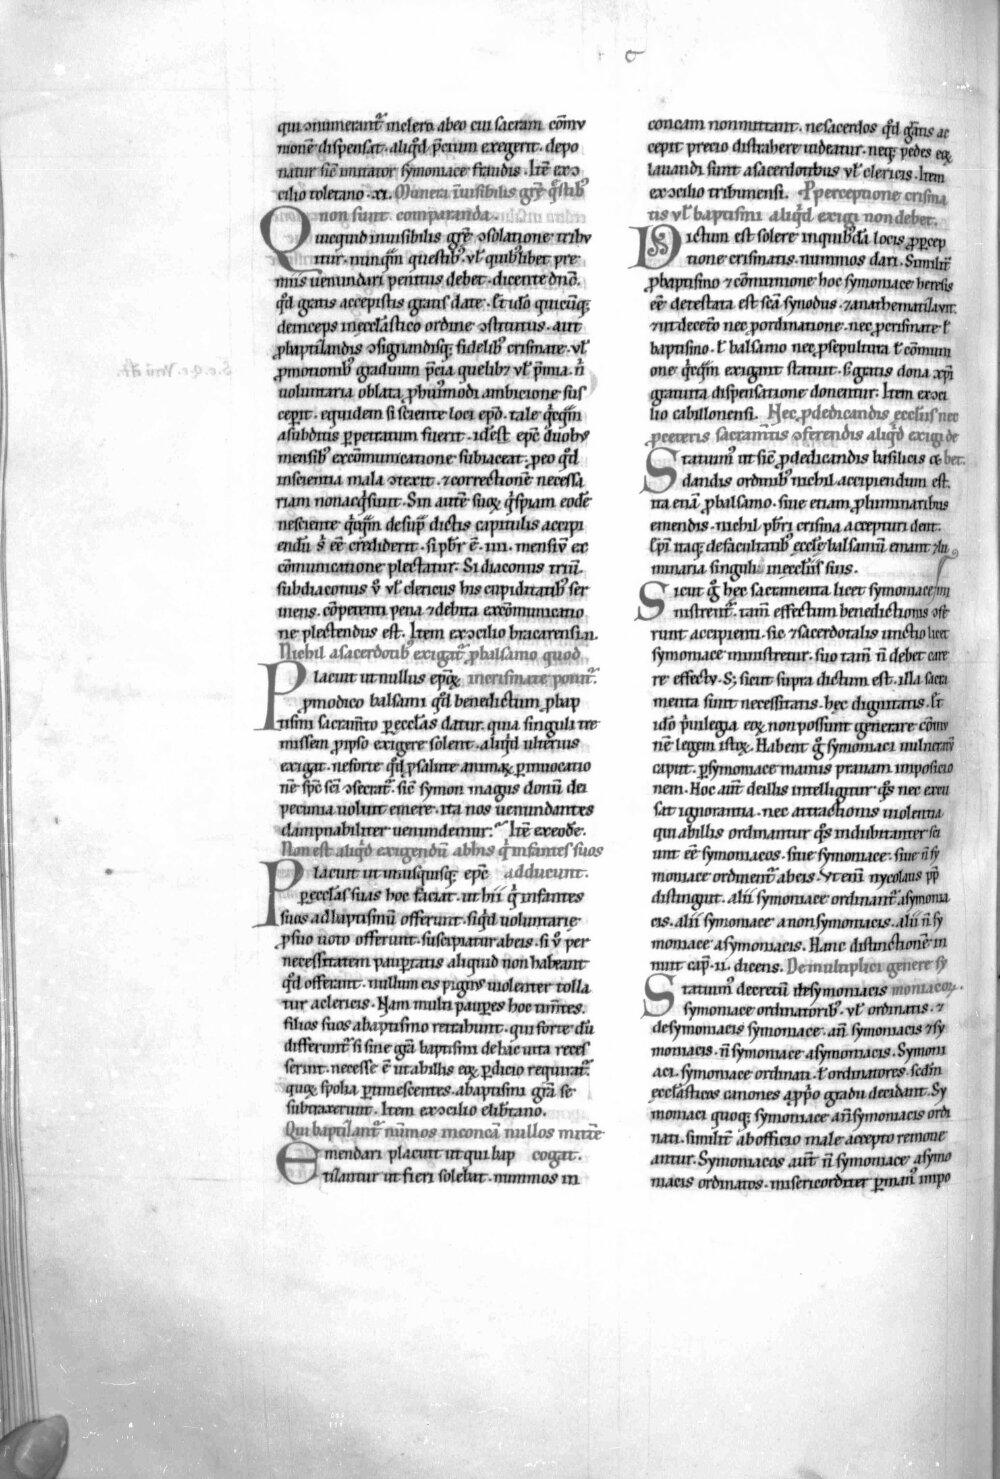 qui ꝯnumerant᷑ inclero abeo cui sacram cōmu
nionē dispensat. aliqͥd p̄cium exegerit. depo
natur sic̄ imitator symoniace fraudis. Itē exꝯ
cilio toletano .xi. Munera īuisibilis grē q̄stibꝰ
non sunt comparanda.
Quicquid inuisibilis grē ꝯsolatione tribu
itur. nunq̄m questibꝰ. ul̓ quibꝰlibet pre
miis uenundari penitus debet. dicente dnō.
qͦd gratis accepistis gratis date. Et idō quicūq;
deinceps inecclāstico ordine ꝯstitutus. aut
ꝓbaptizandis ꝯsignandisq; fidelibꝰ crismate. ul̓
ꝓmotionibꝰ graduum p̄cia quelibꝫ ul̓ p̄mia. n̄
uoluntaria oblata ꝓhuiꝰmodi ambicione sus
cepit. equidem si sciente loci ep̄o. tale q̄cq̄m
asubditis ꝑpetratum fuerit. idēst ep̄c duobꝰ
mensibꝰ excōmunicatione subiaceat. ꝓeo qͦd
inscientia mala ꝯtexit. ⁊correctionē necessa
riam nonadq̄siuit. Sin autē suoꝝ q̄spiam eodē
nesciente q̄cq̄m desup̄ dictis capitulis accipi
endū s̄ eē crediderit. si pb̄r ē .iiii. mensiū ex
cōmunicatione plectatur. Si diaconus triū.
subdiaconus u̇ ul̓ clericus his cupiditatibꝰ ser
uiens. cōpetenti pena ⁊debita excōmunicatio
ne plectendus est. Item exꝯcilio bracarensi.ii.
Nichil asacerdotibꝰ exigat᷑ ꝓbalsamo quod
Placuit ut nullus ep̄oꝝ incrismate ponit᷑.
ꝓmodico balsami qͦd benedictum ꝓbap
tismi sacram̄to ꝑ ecclās datur. quia singuli tre
missem ꝓipso exigere solent. aliqͥd ulterius
exigat. neforte qͦd ꝓsalute animaꝝ ꝑinuocatio
nē sp̄c scī ꝯsecrat᷑. sic̄ symon magus donū dei
pecunia uoluit emere. ita nos uenundantes
dampnabiliter uenundemur. Itē exeodē.
Non est aliqͥd exigendū abhis q̇ infantes suos
Placuit ut unusquisq; ep̄c adducunt.
ꝑecclās suas hoc faciat. ut hii q̇ infantes
suos adbaptismū offerunt. siqͥd uoluntarie
ꝓsuo uoto offerunt. suscipiatur abeis. si u̇ per
necessitatem pauꝑtatis aliquid non habeant
qͦd offerant. nullum eis pignꝰ uiolenter tolla
tur aclericis. Nam multi pauꝑes hoc tim̄tes.
filios suos abaptismo retrahunt. qui forte dū
differunt᷑ si sine grā baptismi de hac uita reces
serint. necesse ē ut abillis eoꝝ ꝑdicio requirat᷑.
quoꝝ spolia ꝑtimescentes. abaptismi grā se
subtraxerunt. Item exꝯcilio elib̄tano.
Qui baptizant᷑ nūmos inconcā nullos mittē
Emendari placuit ut qui bap cogat᷑.
tizantur ut fieri solebat. nummos in
concam nonmittant. nesacerdos qͦd grāis ac
cepit precio distrahere uideatur. neq; pedes eoꝝ
lauandi sunt asacerdotibus ul̓ clericis. Item
exꝯcilio triburiensi. Pꝓ perceptione crisma
tis ul̓ baptismi aliqͥd exigi non debet.
Dictum est solere inquibꝰdā locis ꝓꝑcep
tione crismatis. nummos dari. Similit᷑
ꝓbaptismo ⁊cōmunione hoc symoniace heresis
eē detestata est scā synodus. ⁊anathematizauit.
⁊ut decet̄o nec ꝓordinatione. nec ꝓcrismate ł
baptismo. ł balsamo nec ꝓsepultura ł cōmuni
one q̄cq̄m exigant statuit. S; gratis dona xp̄i
gratuita dispensatione donentur. Item exꝯci
lio cabillonensi. Nec ꝓdedicandis ecclīis nec
ꝓceteris sacram̄tis ꝯferendis aliqͥd exigi de
Statuim᷑ ut sic̄ ꝓdedicandis basilicis ⁊ bet.
dandis ordinibꝰ nichil accipiendum est.
ita etiā ꝓbalsamo. siue etiam ꝓluminaribus
emendis. nichil pb̄ri crisma accepturi dent.
Ep̄i itaq; defacultatibꝰ ecclē balsamū emant ⁊lu
minaria singuli inecclīis suis.
Sicut g̊ hec sacramenta licet symoniace mi
nistrent᷑. tam̄ effectum benedictionis ꝯfe
runt accipienti. sic ⁊sacerdotalis unctio licet
symoniace ministretur. suo tam̄ n̄ debet care
re effectu. S; sicut supra dictum est. illa sacra
menta sunt necessitatis. hec dignitatis. Et
idō p̄uilegia eoꝝ non possunt generare cōmu
nē legem istoꝝ. Habent g̊ symoniaci uulneratū
caput. ꝑsymoniace manus prauam imposicio
nem. Hoc aut̄ deillis intelligitur qͦs nec excu
sat ignorantia. nec attractionis uiolentia
qui abillis ordinantur qͦs indubitanter sci
unt eē symoniacos. siue symoniace. siue n̄ sy
moniace ordinent᷑ abeis. Vt enī nycolaus pp̄
distinguit. alii symoniace ordinant᷑ asymonia
cis. alii symoniace anonsymoniacis. alii n̄ sy
moniace asymoniacis. Hanc distinctionē in
nuit cap̄ .ii. dicens. De multiplici genere sy
Statuim᷑ decretū desymoniacis moniacoꝝ.
symoniace ordinatoribꝰ. ul̓ ordinatis. ⁊
desymoniacis symoniace. an̄ symoniacis ⁊sy
moniacis. n̄ symoniace asymoniacis. Symoni
aci. symoniace ordinati. ł ordinatores. scd̄m
ecclāsticos canones aꝓp̓o gradu decidant. Sy
moniaci quoq; symoniace an̄symoniacis ordi
nati. similit̄ abofficio male accepto remoue
antur. Symoniacos aut̄ n̄ symoniace asymo
niacis ordinatos. misericorditer ꝑman᷑ impo